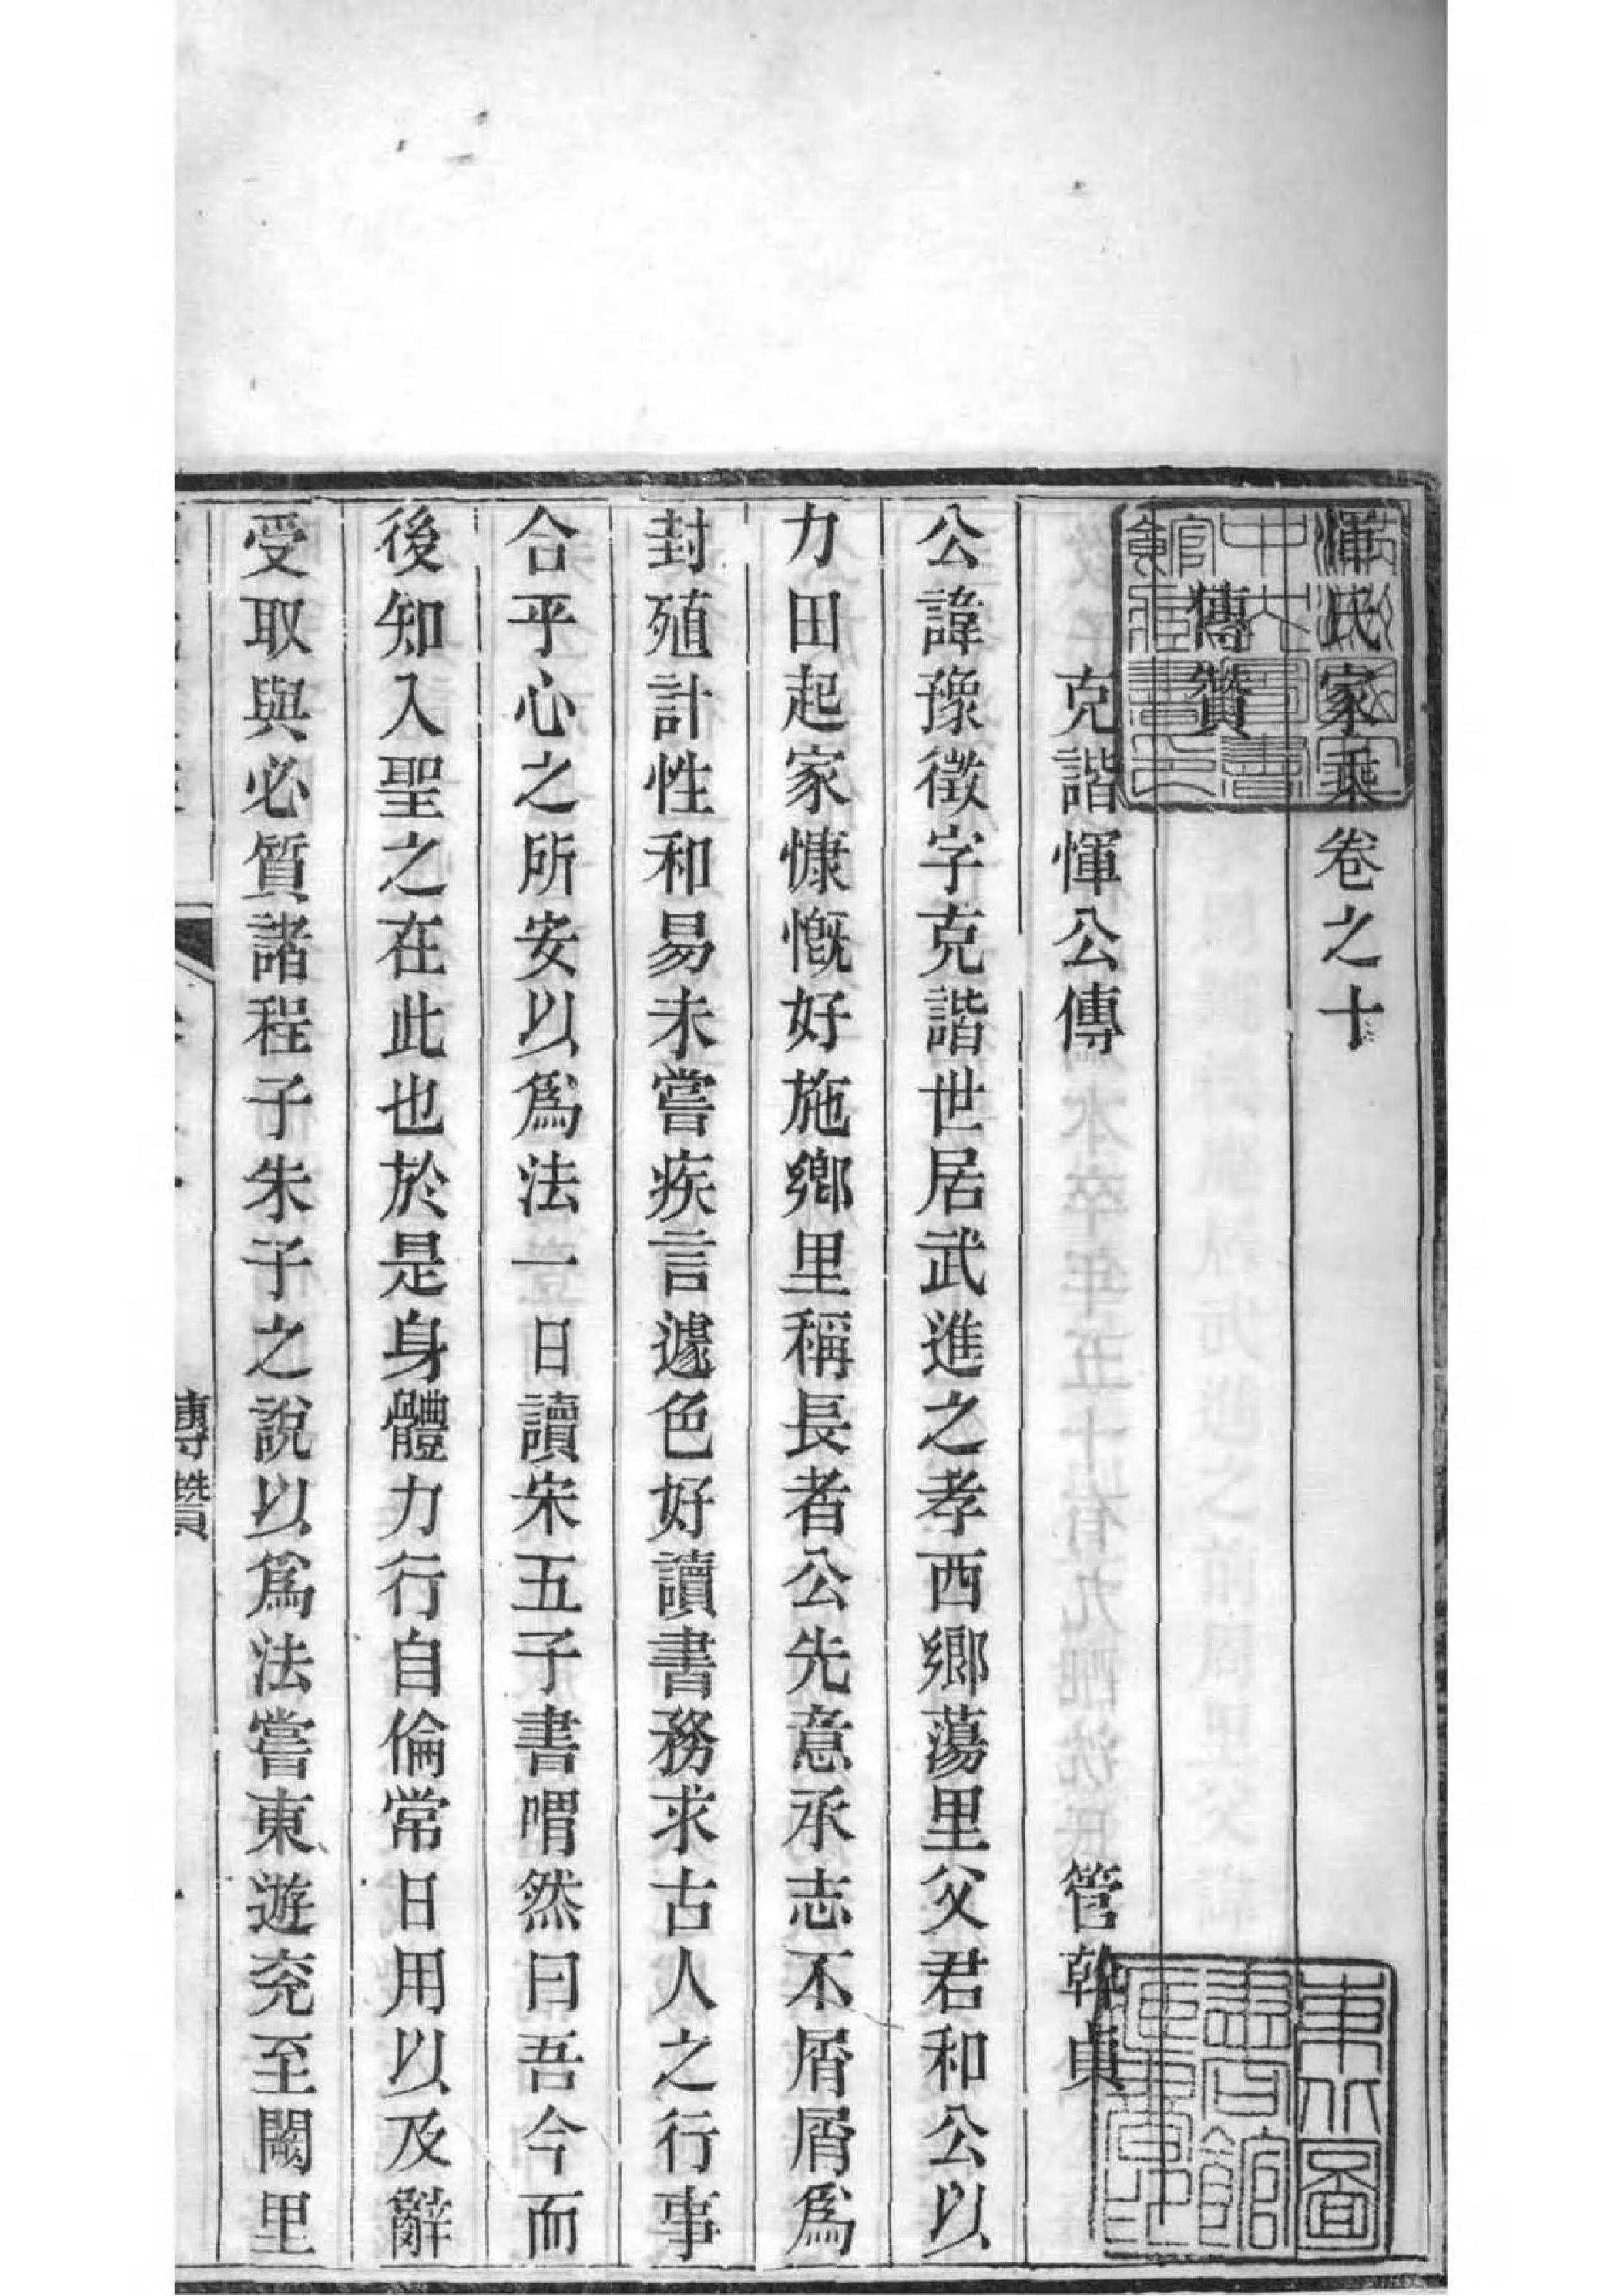 惲氏家乘卷之十
傳贊
克諧惲公傳 管幹貞
公諱豫徵字克諧世居武進之孝西鄉蕩里父君和公以
力田起家慷慨好施鄉里稱長者公先意承志不屑屑爲
封殖計性和易未嘗疾言遽色好讀書務求古人之行事
合乎心之所安以爲法一日讀宋五子書喟然曰吾今而
後知入聖之在此也於是身體力行自倫常日用以及辭
受取與必質諸程子朱子之說以爲法嘗東遊兖至闕里
傳贊